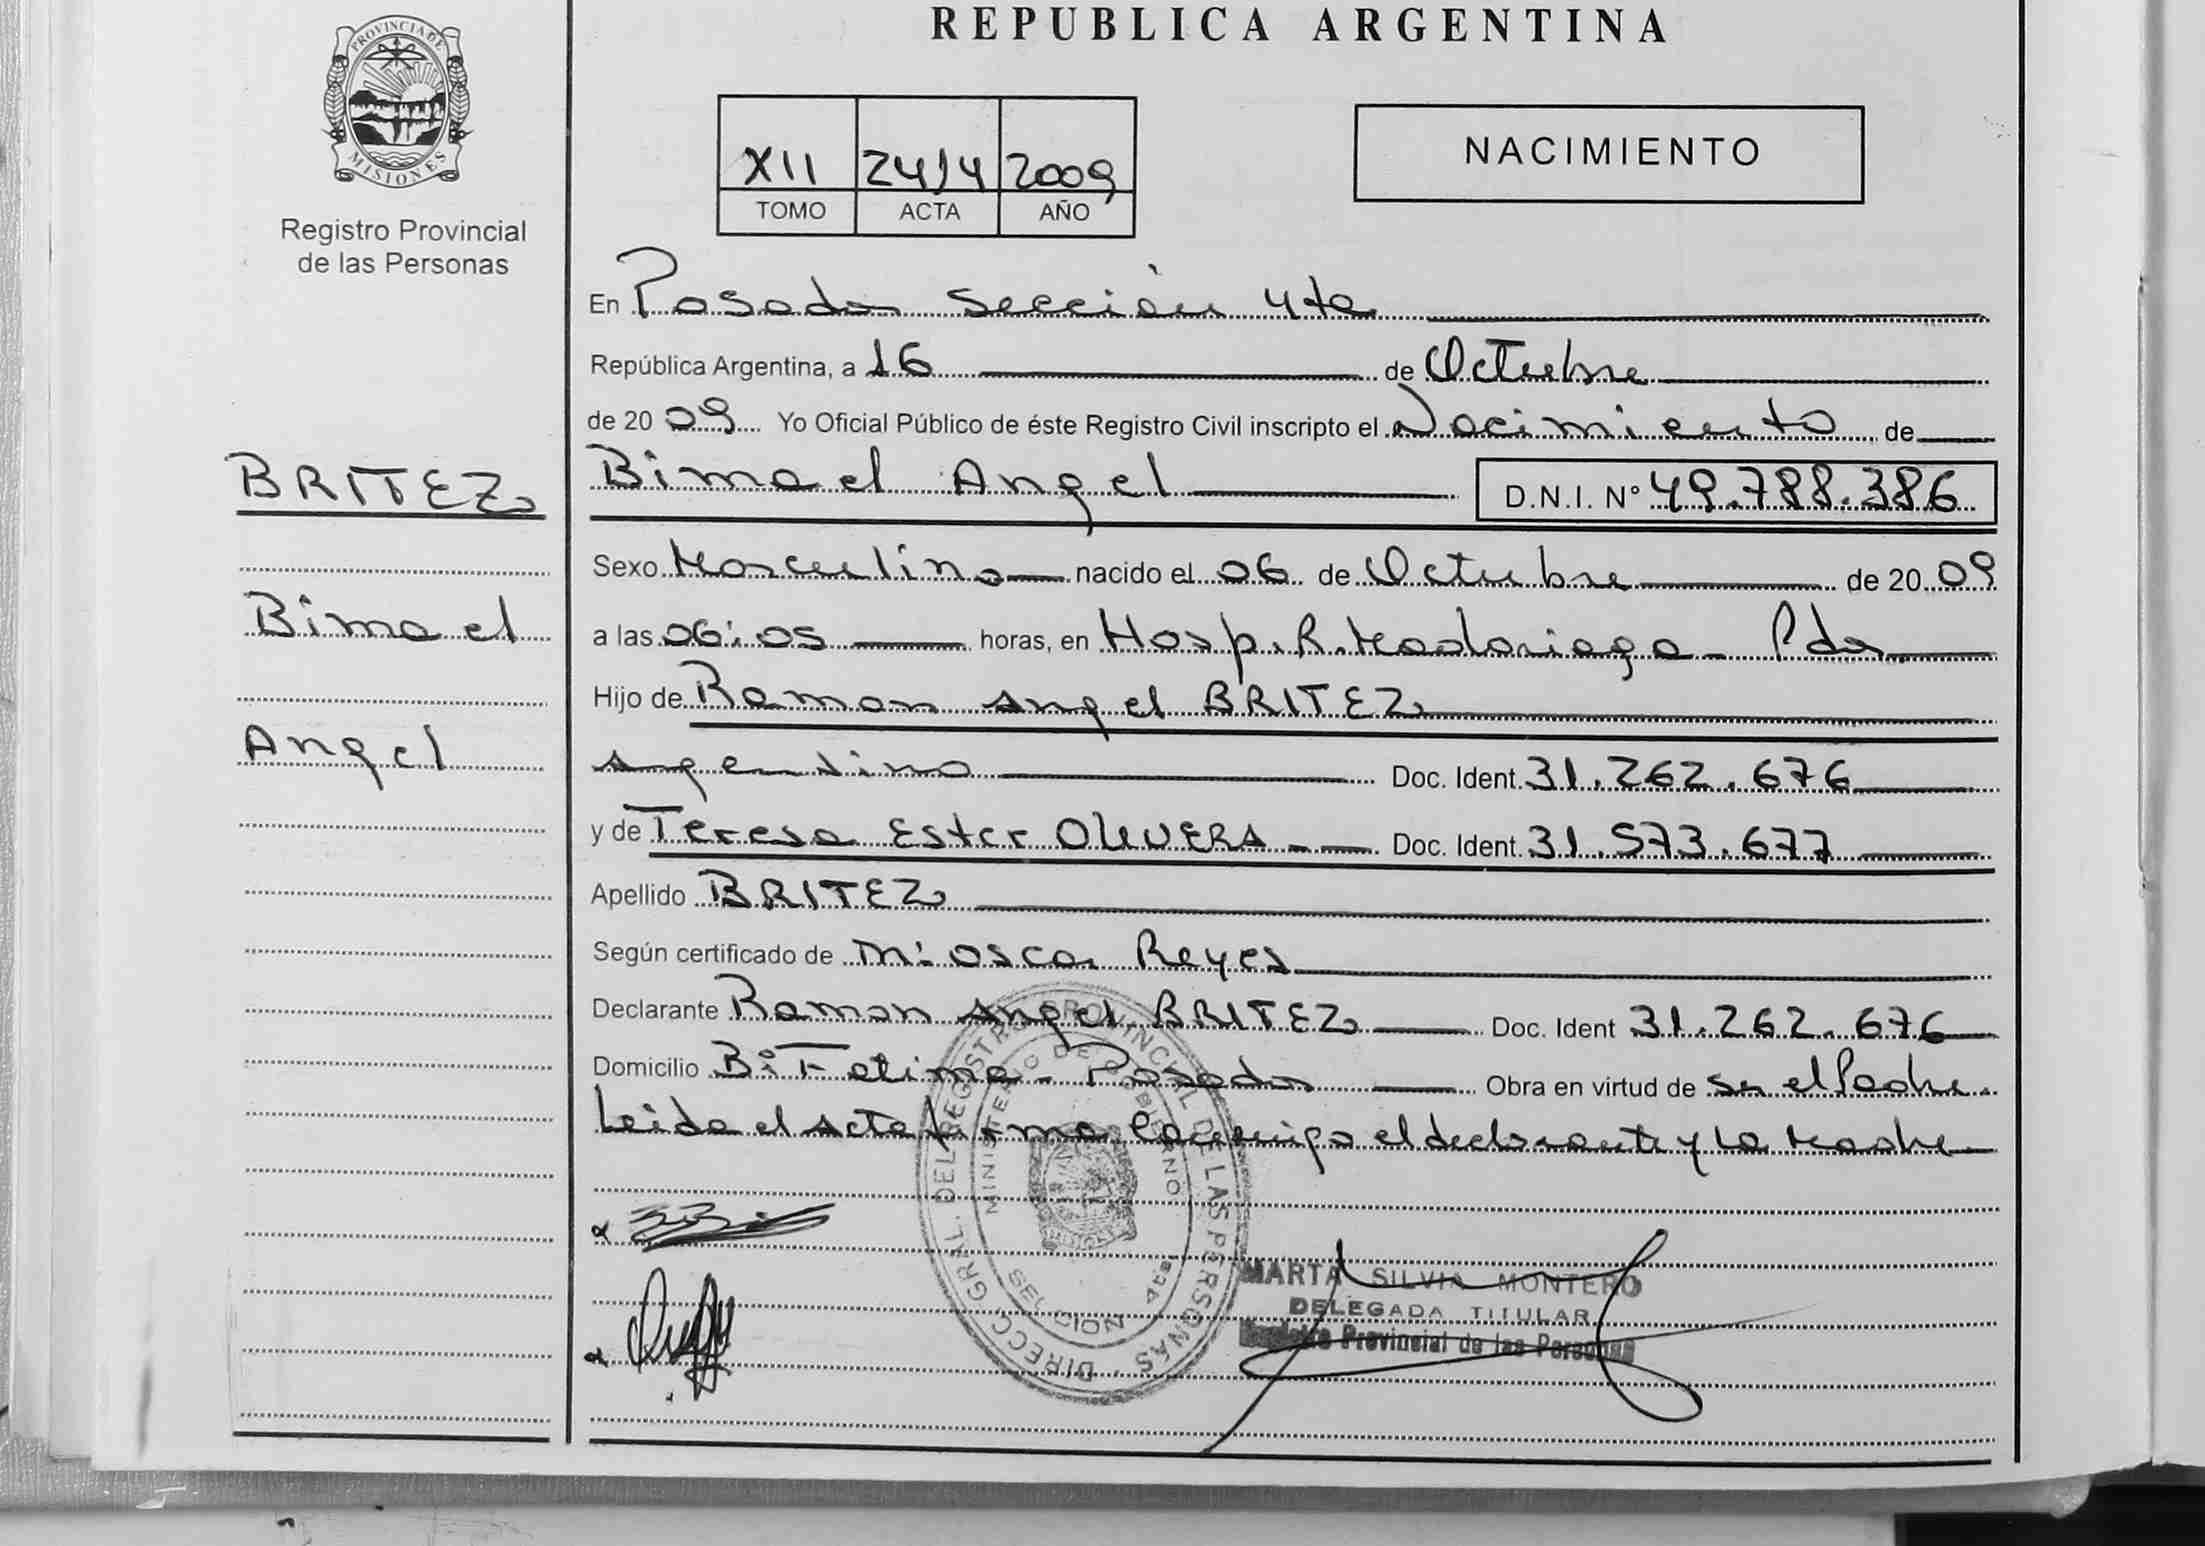 REPUBLICA ARGENTINA
PROVINCIA DE MISIONES
Registro Provincial
de las Personas
XII 2414 2009
TOMO ACTA AÑO
NACIMIENTO
En Posadas Sección 4ta
República Argentina, a 16 de Octubre
de 2009 Yo Oficial Público de éste Registro Civil inscripto el Nacimiento de
BRITEZ
Bimael Angel D.N.I. N° 49.788.386
Sexo Masculino nacido el 06 de Octubre de 2009
Bimael
a las 06:05 horas, en Hosp. R. Madariaga - Pdas
Hijo de Ramon Angel BRITEZ
Angel
Argentino Doc. Ident. 31.262.676
y de Teresa Ester OLIVERA Doc. Ident. 31.573.677
Apellido BRITEZ
Según certificado de M: Oscar Reyes
Declarante Ramon Angel BRITEZ Doc. Ident 31.262.676
Domicilio B: Fatima - Posadas Obra en virtud de ser el Padre.
Leida el Acta firma Conmigo el declarante y la Madre
DIRECC. GRAL. DEL REGISTRO PROVINCIAL DE LAS PERSONAS
MINISTERIO DE GOBIERNO
SECCION 4ta
MARTA SILVIA MONTERO
DELEGADA TITULAR
Registro Provincial de las Personas